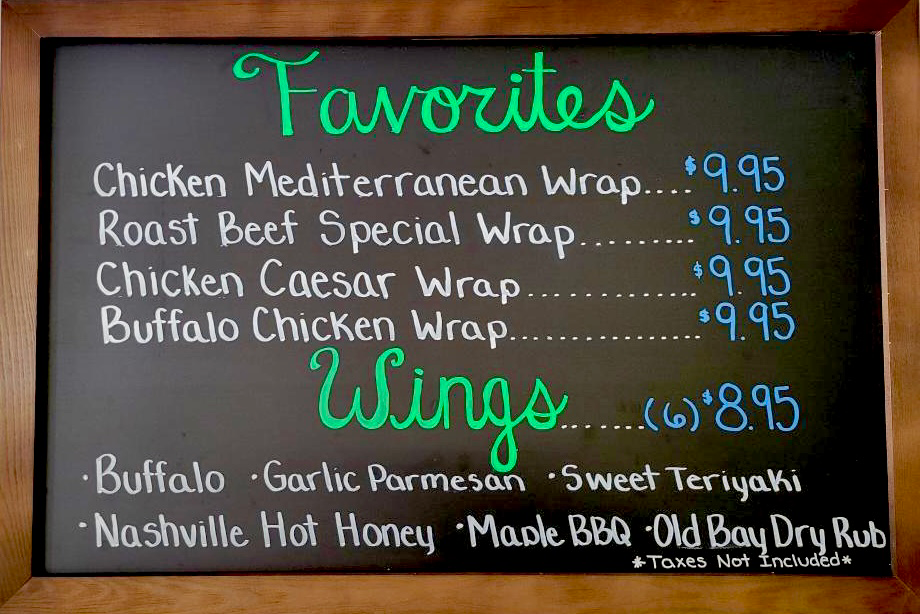 Favorites
Chicken Mediterranean Wrap....$9.95
Roast Beef Special Wrap.........$9.95
Chicken Caesar Wrap.............$9.95
Buffalo Chicken Wrap...............$9.95
Wings.......(6)$8.95
·Buffalo ·Garlic Parmesan ·Sweet Teriyaki
·Nashville Hot Honey ·Maple BBQ ·Old Bay Dry Rub
*Taxes Not Included*